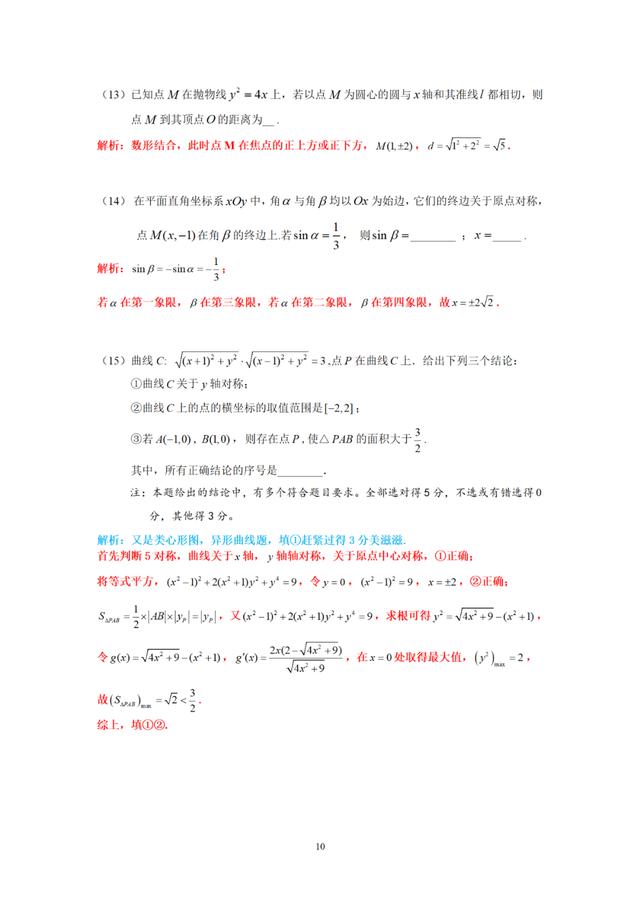 （13）已知点 M 在抛物线 y² = 4x 上，若以点 M 为圆心的圆与 x 轴和其准线 l 都相切，则
点 M 到其顶点 O 的距离为__ .
解析：数形结合，此时点 M 在焦点的正上方或正下方，M(1,±2)，d = √(1²+2²) = √5．
（14） 在平面直角坐标系 xOy 中，角 α 与角 β 均以 Ox 为始边，它们的终边关于原点对称，
点 M(x,−1) 在角 β 的终边上.若 sin α = 1/3， 则 sin β = ________ ；x = _____ .
解析：sin β = −sin α = −1/3；
若 α 在第一象限，β 在第三象限，若 α 在第二象限，β 在第四象限，故 x = ±2√2．
（15）曲线 C: √((x+1)²+y²)·√((x−1)²+y²) = 3 ,点 P 在曲线 C 上．给出下列三个结论：
①曲线 C 关于 y 轴对称；
②曲线 C 上的点的横坐标的取值范围是 [−2,2]；
③若 A(−1,0)，B(1,0)，则存在点 P , 使△ PAB 的面积大于 3/2 .
其中，所有正确结论的序号是________．
注：本题给出的结论中，有多个符合题目要求。全部选对得 5 分，不选或有错选得 0
分，其他得 3 分。
解析：又是类心形图，异形曲线题，填①赶紧过得 3 分美滋滋.
首先判断 5 对称，曲线关于 x 轴， y 轴轴对称，关于原点中心对称，①正确；
将等式平方，(x²−1)²+2(x²+1)y²+y⁴ = 9，令 y = 0，(x²−1)² = 9，x = ±2，②正确；
S△PAB = 1/2×|AB|×|yP| = |yP|，又 (x²−1)²+2(x²+1)y²+y⁴ = 9，求根可得 y² = √(4x²+9)−(x²+1)，
令 g(x) = √(4x²+9)−(x²+1)，g′(x) = 2x(2−√(4x²+9))/√(4x²+9)，在 x = 0 处取得最大值，(y²)max = 2，
故 (S△PAB)max = √2 < 3/2．
综上，填①②．
10